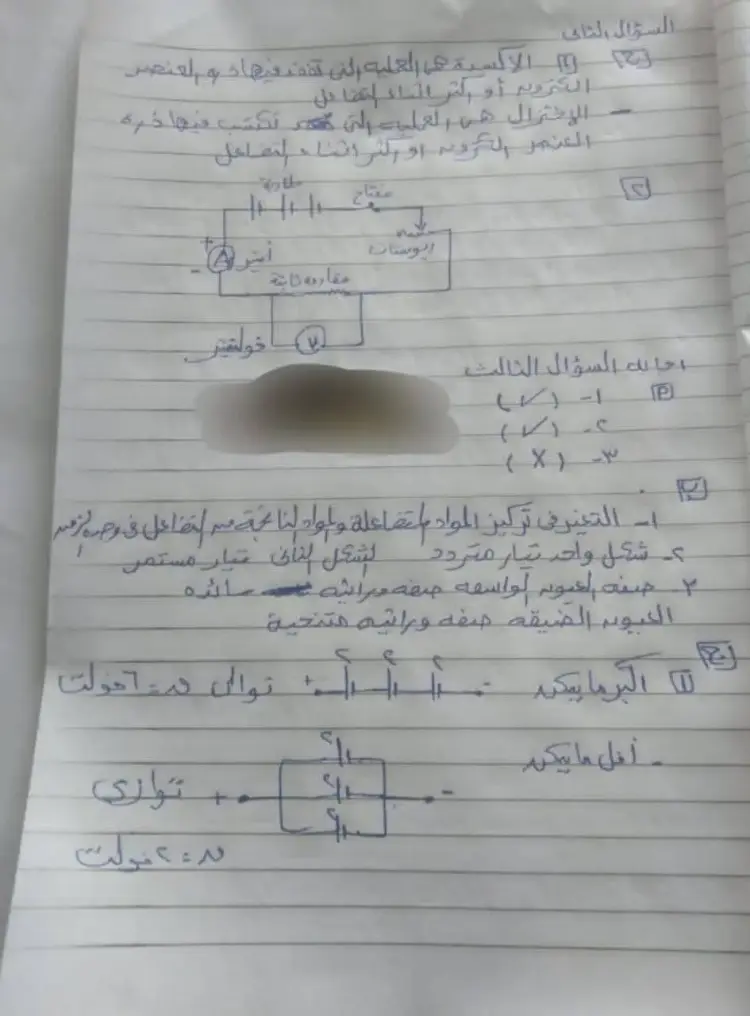 السؤال الثانى
ج ١ الأكسدة هى العملية التى تفقد فيها ذرة العنصر
الكترون أو أكثر أثناء التفاعل
- الإختزال هى العملية التى تكتسب فيها ذرة
العنصر الكترون او أكثر اثناء التفاعل
٢
بطارية
مفتاح
ريوستات
+
-
A
أميتر
مقاومة ثابتة
V
فولتميتر
اجابه السؤال الثالث
P ١- (✓)
٢- (✓)
٣- (X)
ب
١- التغير فى تركيز المواد المتفاعلة والمواد الناتجة من التفاعل فى وحدة الزمن
٢- شكل واحد تيار متردد الشكل الثانى تيار مستمر
٣- صفه العيون الواسعه صفه وراثيه سائده
العيون الضيقه صفه وراثيه متنحية
ج
١ اكبر ما يمكن - ٢ ٢ ٢ + توالى ق.د = ٦ فولت
- أقل ما يمكن
٢
- ٢ + توازى
٢
ق.د = ٢ فولت